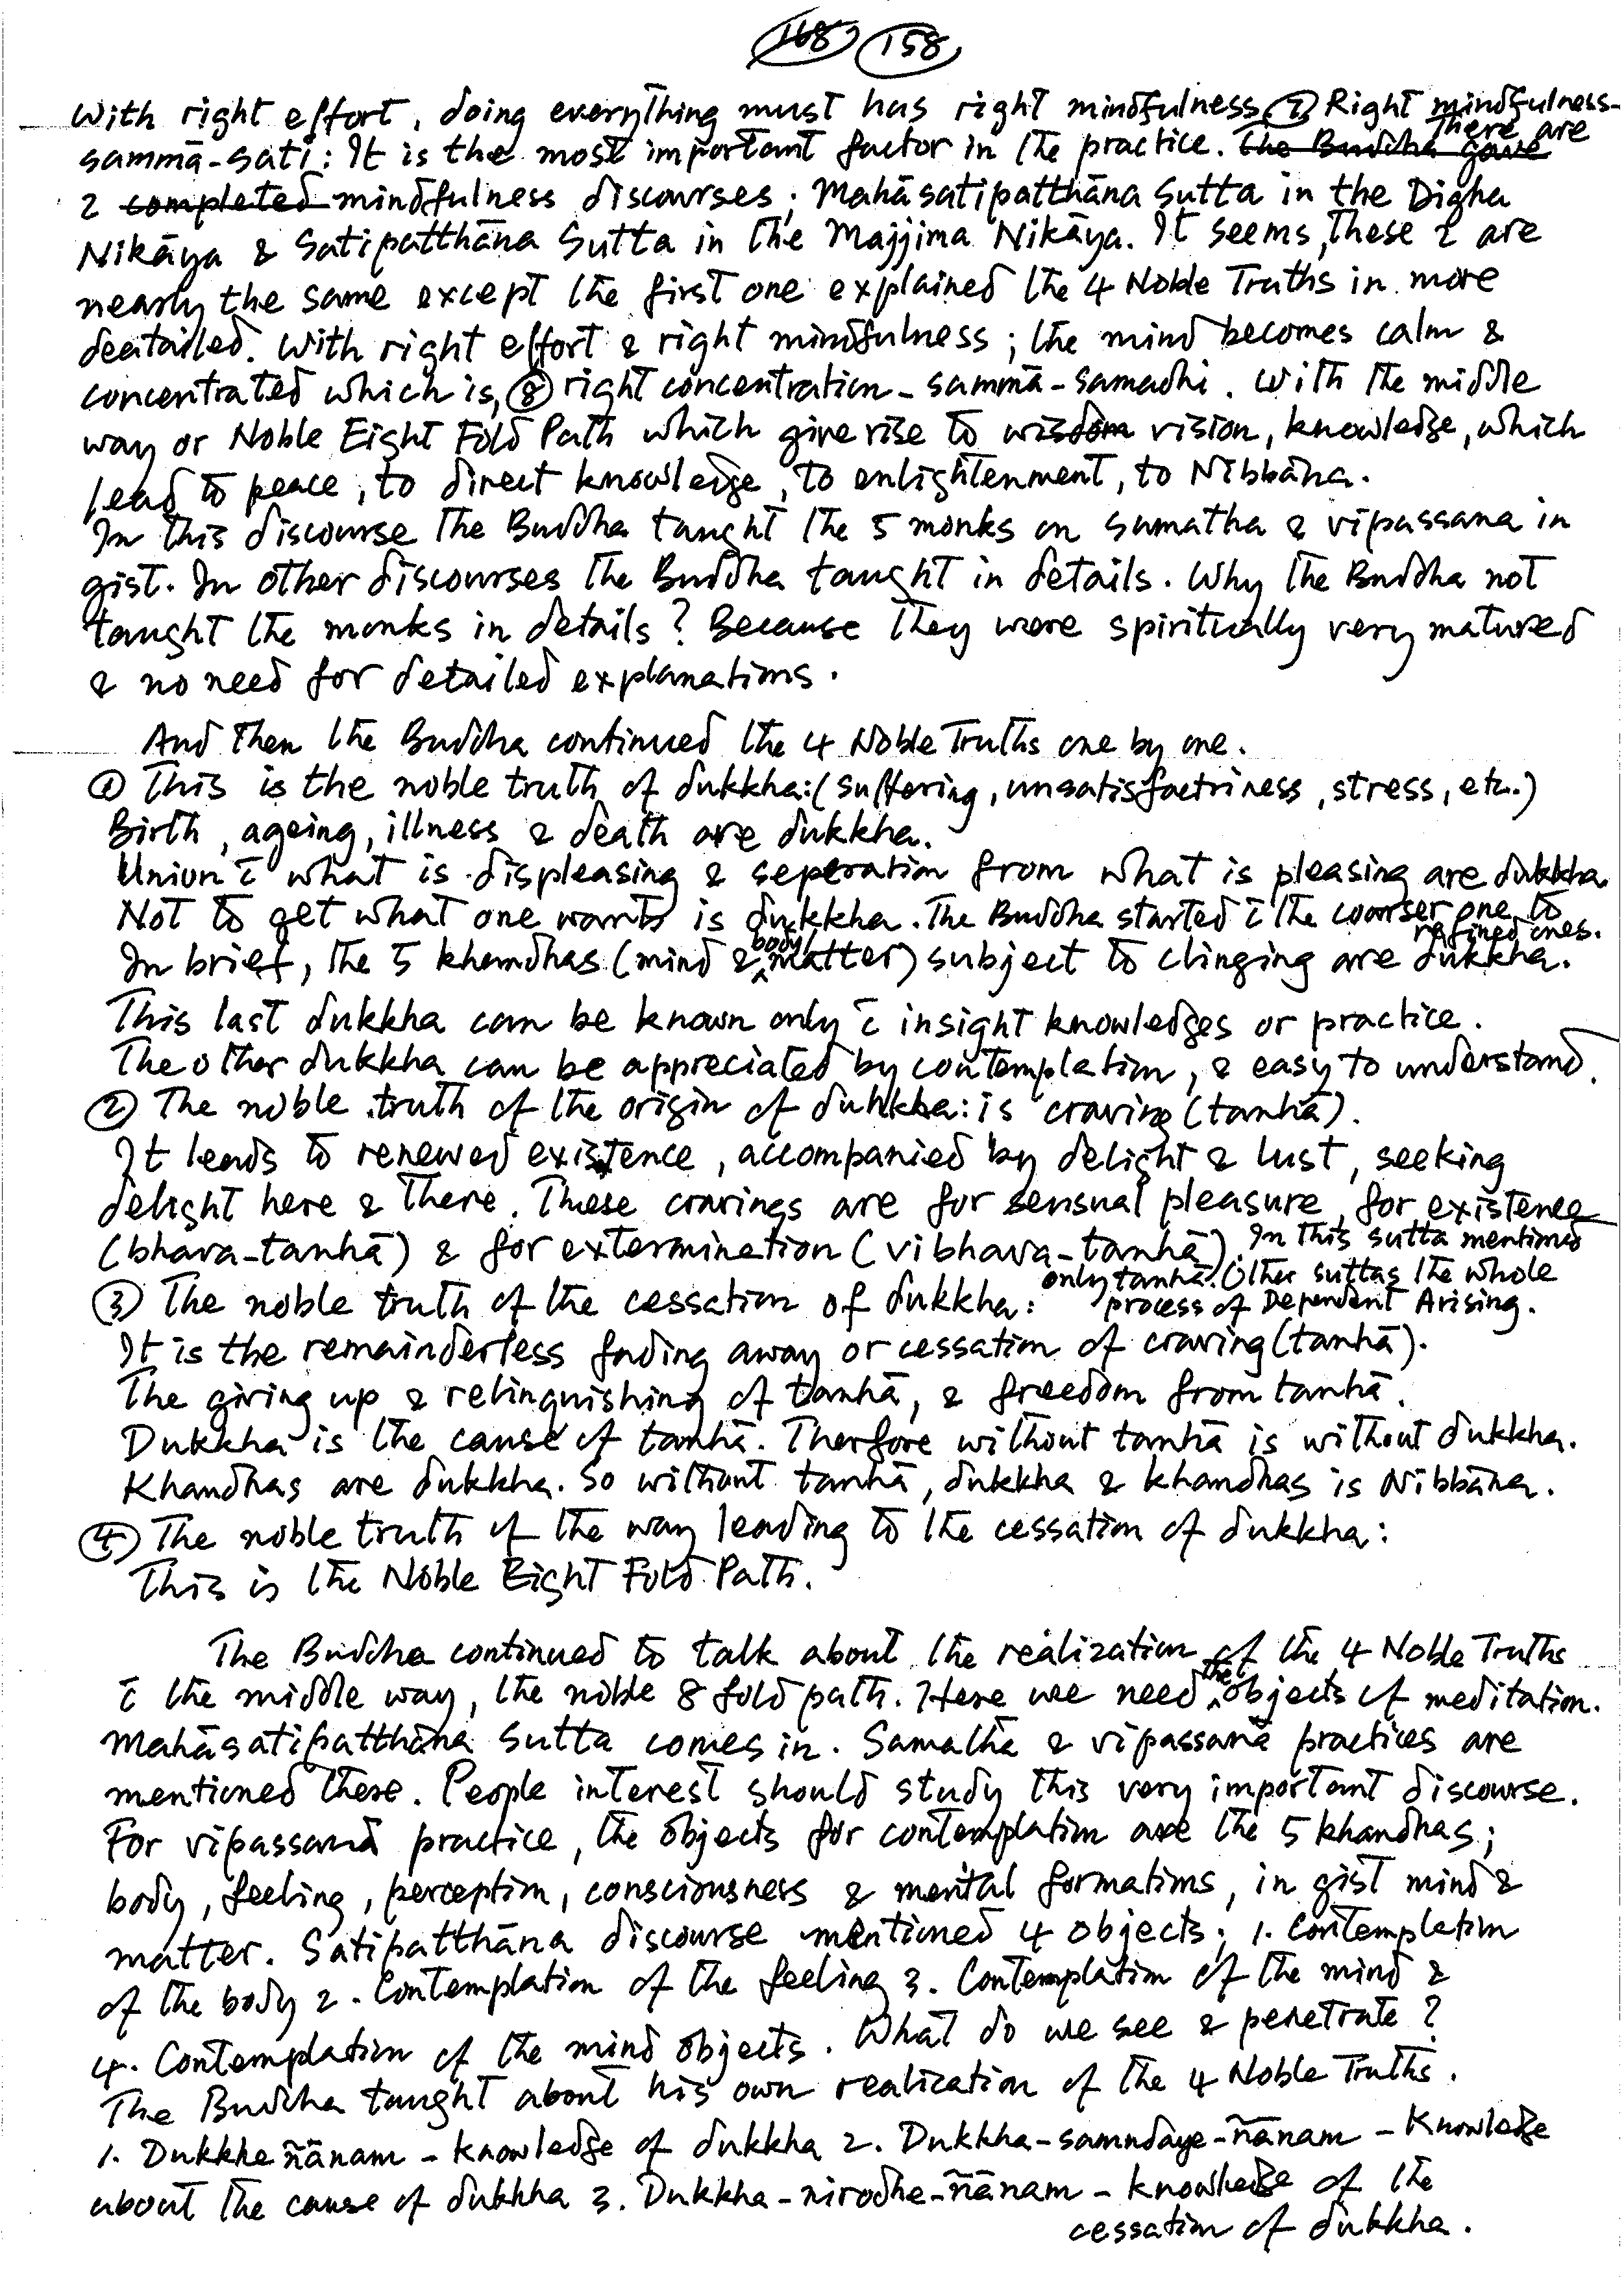 168 158
With right effort, doing everything must has right mindfulness. ⑦ Right mindfulness-
sammā-sati: It is the most important factor in the practice. the Buddha gave There are
2 completed mindfulness discourses; Mahāsatipatthāna Sutta in the Digha
Nikāya & Satipatthāna Sutta in the Majjima Nikāya. It seems, these 2 are
nearly the same except the first one explained the 4 Noble Truths in more
deatailed. With right effort & right mindfulness; the mind becomes calm &
concentrated which is, ⑧ right concentration - sammā-samadhi. With the middle
way or Noble Eight Fold Path which give rise to wisdom vision, knowledge, which
lead to peace, to direct knowledge, to enlightenment, to Nibbāna.
In this discourse the Buddha taught the 5 monks on samatha & vipassana in
gist. In other discourses the Buddha taught in details. Why the Buddha not
taught the monks in details? Because they were spiritually very matured
& no need for detailed explanations.
And then the Buddha continued the 4 Noble Truths one by one.
① This is the noble truth of dukkha: (suffering, unsatisfactriness, stress, etc..)
Birth, ageing, illness & death are dukkha.
Union c̄ what is displeasing & seperation from what is pleasing are dukkha.
Not to get what one wants is dukkha. The Buddha started c̄ the courser one to
refined ones.
In brief, the 5 khandhas (mind & body/matter) subject to clinging are dukkha.
This last dukkha can be known only c̄ insight knowledges or practice.
The other dukkha can be appreciated by contemplation, & easy to understand.
② The noble truth of the origin of dukkha: is craving (tanhā).
It leads to renewed existence, accompanied by delight & lust, seeking
delight here & there. These cravings are for sensual pleasure, for existence
(bhava-tanhā) & for extermination (vibhava-tanhā). In this sutta mentioned
only tanhā. Other suttas the whole
process of Dependent Arising.
③ The noble truth of the cessation of dukkha:
It is the remainderless fading away or cessation of craving (tanhā).
The giving up & relinquishing of tanhā, & freedom from tanhā.
Dukkha is the cause of tanhā. Therfore without tanhā is without dukkha.
Khandhas are dukkha. So without tanhā, dukkha & khandhas is Nibbāna.
④ The noble truth of the way leading to the cessation of dukkha:
This is the Noble Eight Fold Path.
The Buddha continued to talk about the realization of the 4 Noble Truths
c̄ the middle way, the noble 8 fold path. Here we need the objects of meditation.
Mahāsatipatthāna Sutta comes in. Samatha & vipassanā practices are
mentioned there. People interest should study this very important discourse.
For vipassanā practice, the objects for contemplation are the 5 khandhas;
body, feeling, perception, consciousness & mental formations, in gist mind &
matter. Satipatthāna discourse mentioned 4 objects; 1. Contemplation
of the body 2. Contemplation of the feeling 3. Contemplation of the mind &
4. Contemplation of the mind objects. What do we see & penetrate?
The Buddha taught about his own realization of the 4 Noble Truths.
1. Dukkhe ñānam - knowledge of dukkha 2. Dukkha-samudaye-ñānam - Knowledge
about the cause of dukkha 3. Dukkha-nirodhe-ñānam - knowledge of the
cessation of dukkha.